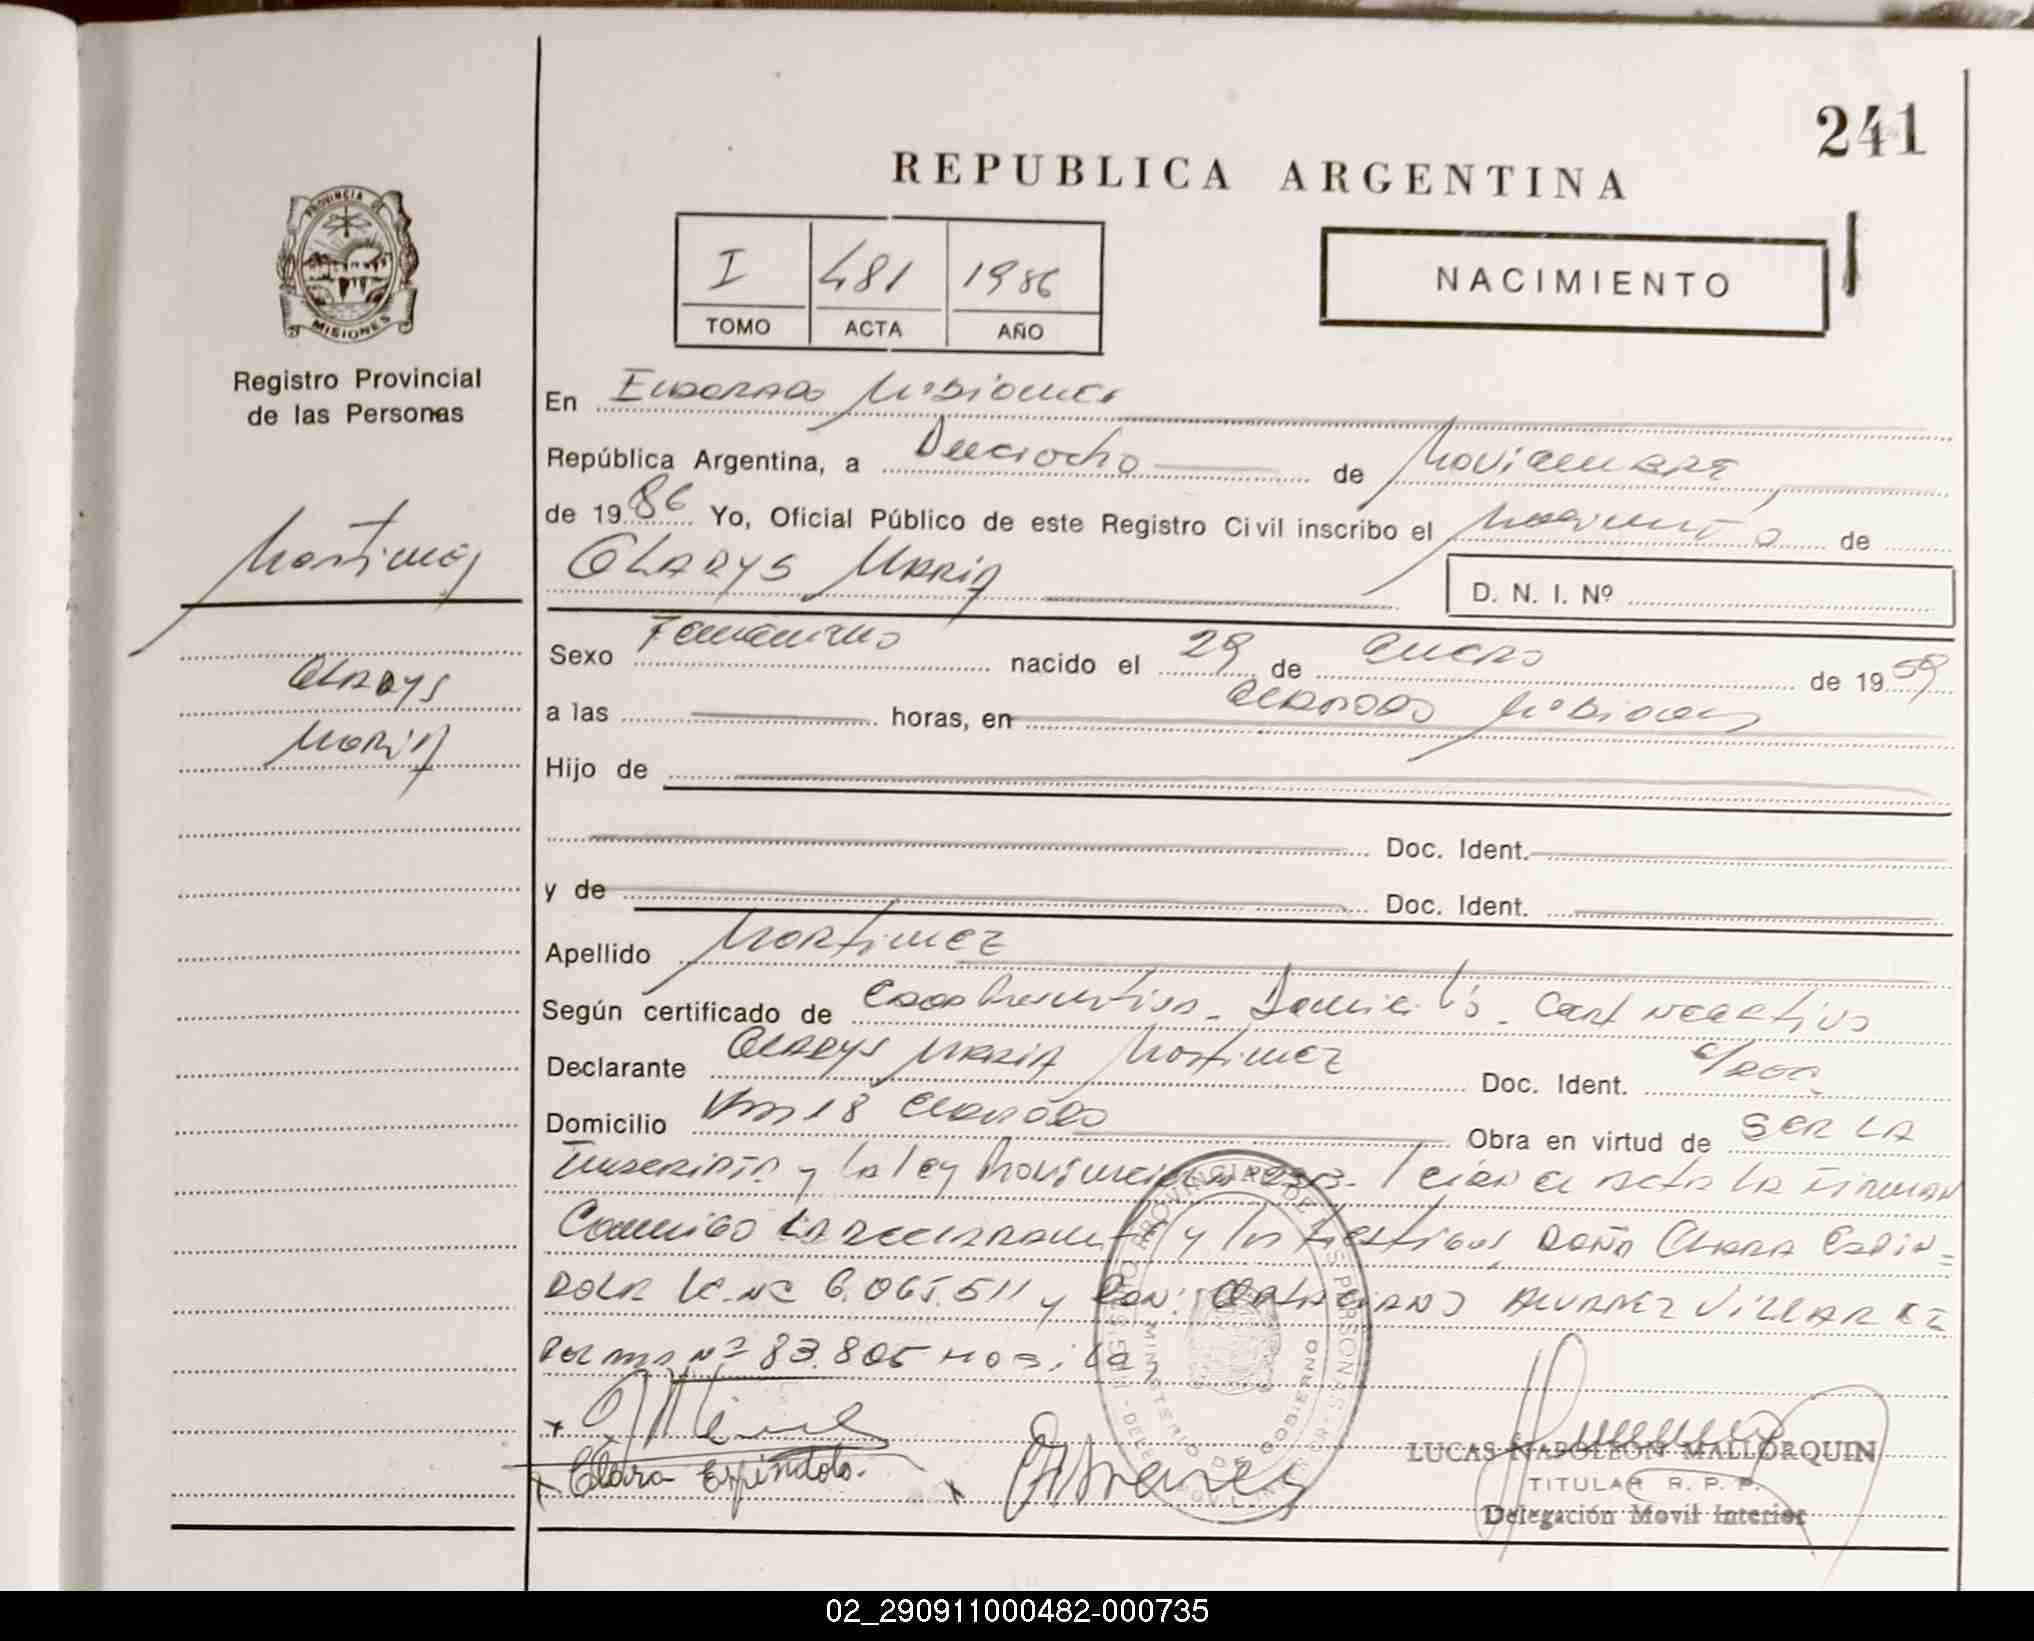 241
REPUBLICA ARGENTINA
PROVINCIA DE
MISIONES
I 481 1986
TOMO ACTA AÑO
NACIMIENTO
Registro Provincial
de las Personas
En Eldorado Misiones
República Argentina, a Dieciocho de Noviembre,
de 1986 Yo, Oficial Público de este Registro Civil inscribo el nacimiento de
GLADYS MARIA
D. N. I. Nº
Martinez
Gladys
Maria
Sexo Femenino nacido el 29 de enero de 1959
a las horas, en eldorado Misiones
Hijo de
Doc. Ident.
y de Doc. Ident.
Apellido Martinez
Según certificado de Domicilio Cert negativo
Declarante Gladys Maria Martinez Doc. Ident. s/doc.
Domicilio Km 18 eldorado Obra en virtud de SER LA
Inscripta y la ley Provincial el acta la firman
Conmigo la declarante y los testigos Doña Clara Espin=
dola lc.nº 6.065.511 y Don: Alvarez Villar
nº 83.805
Clara Espindola.
LUCAS NAPOLEON MALLORQUIN
TITULAR R. P. P.
Delegación Movil Interior
MINISTERIO DE GOBIERNO
02_290911000482-000735